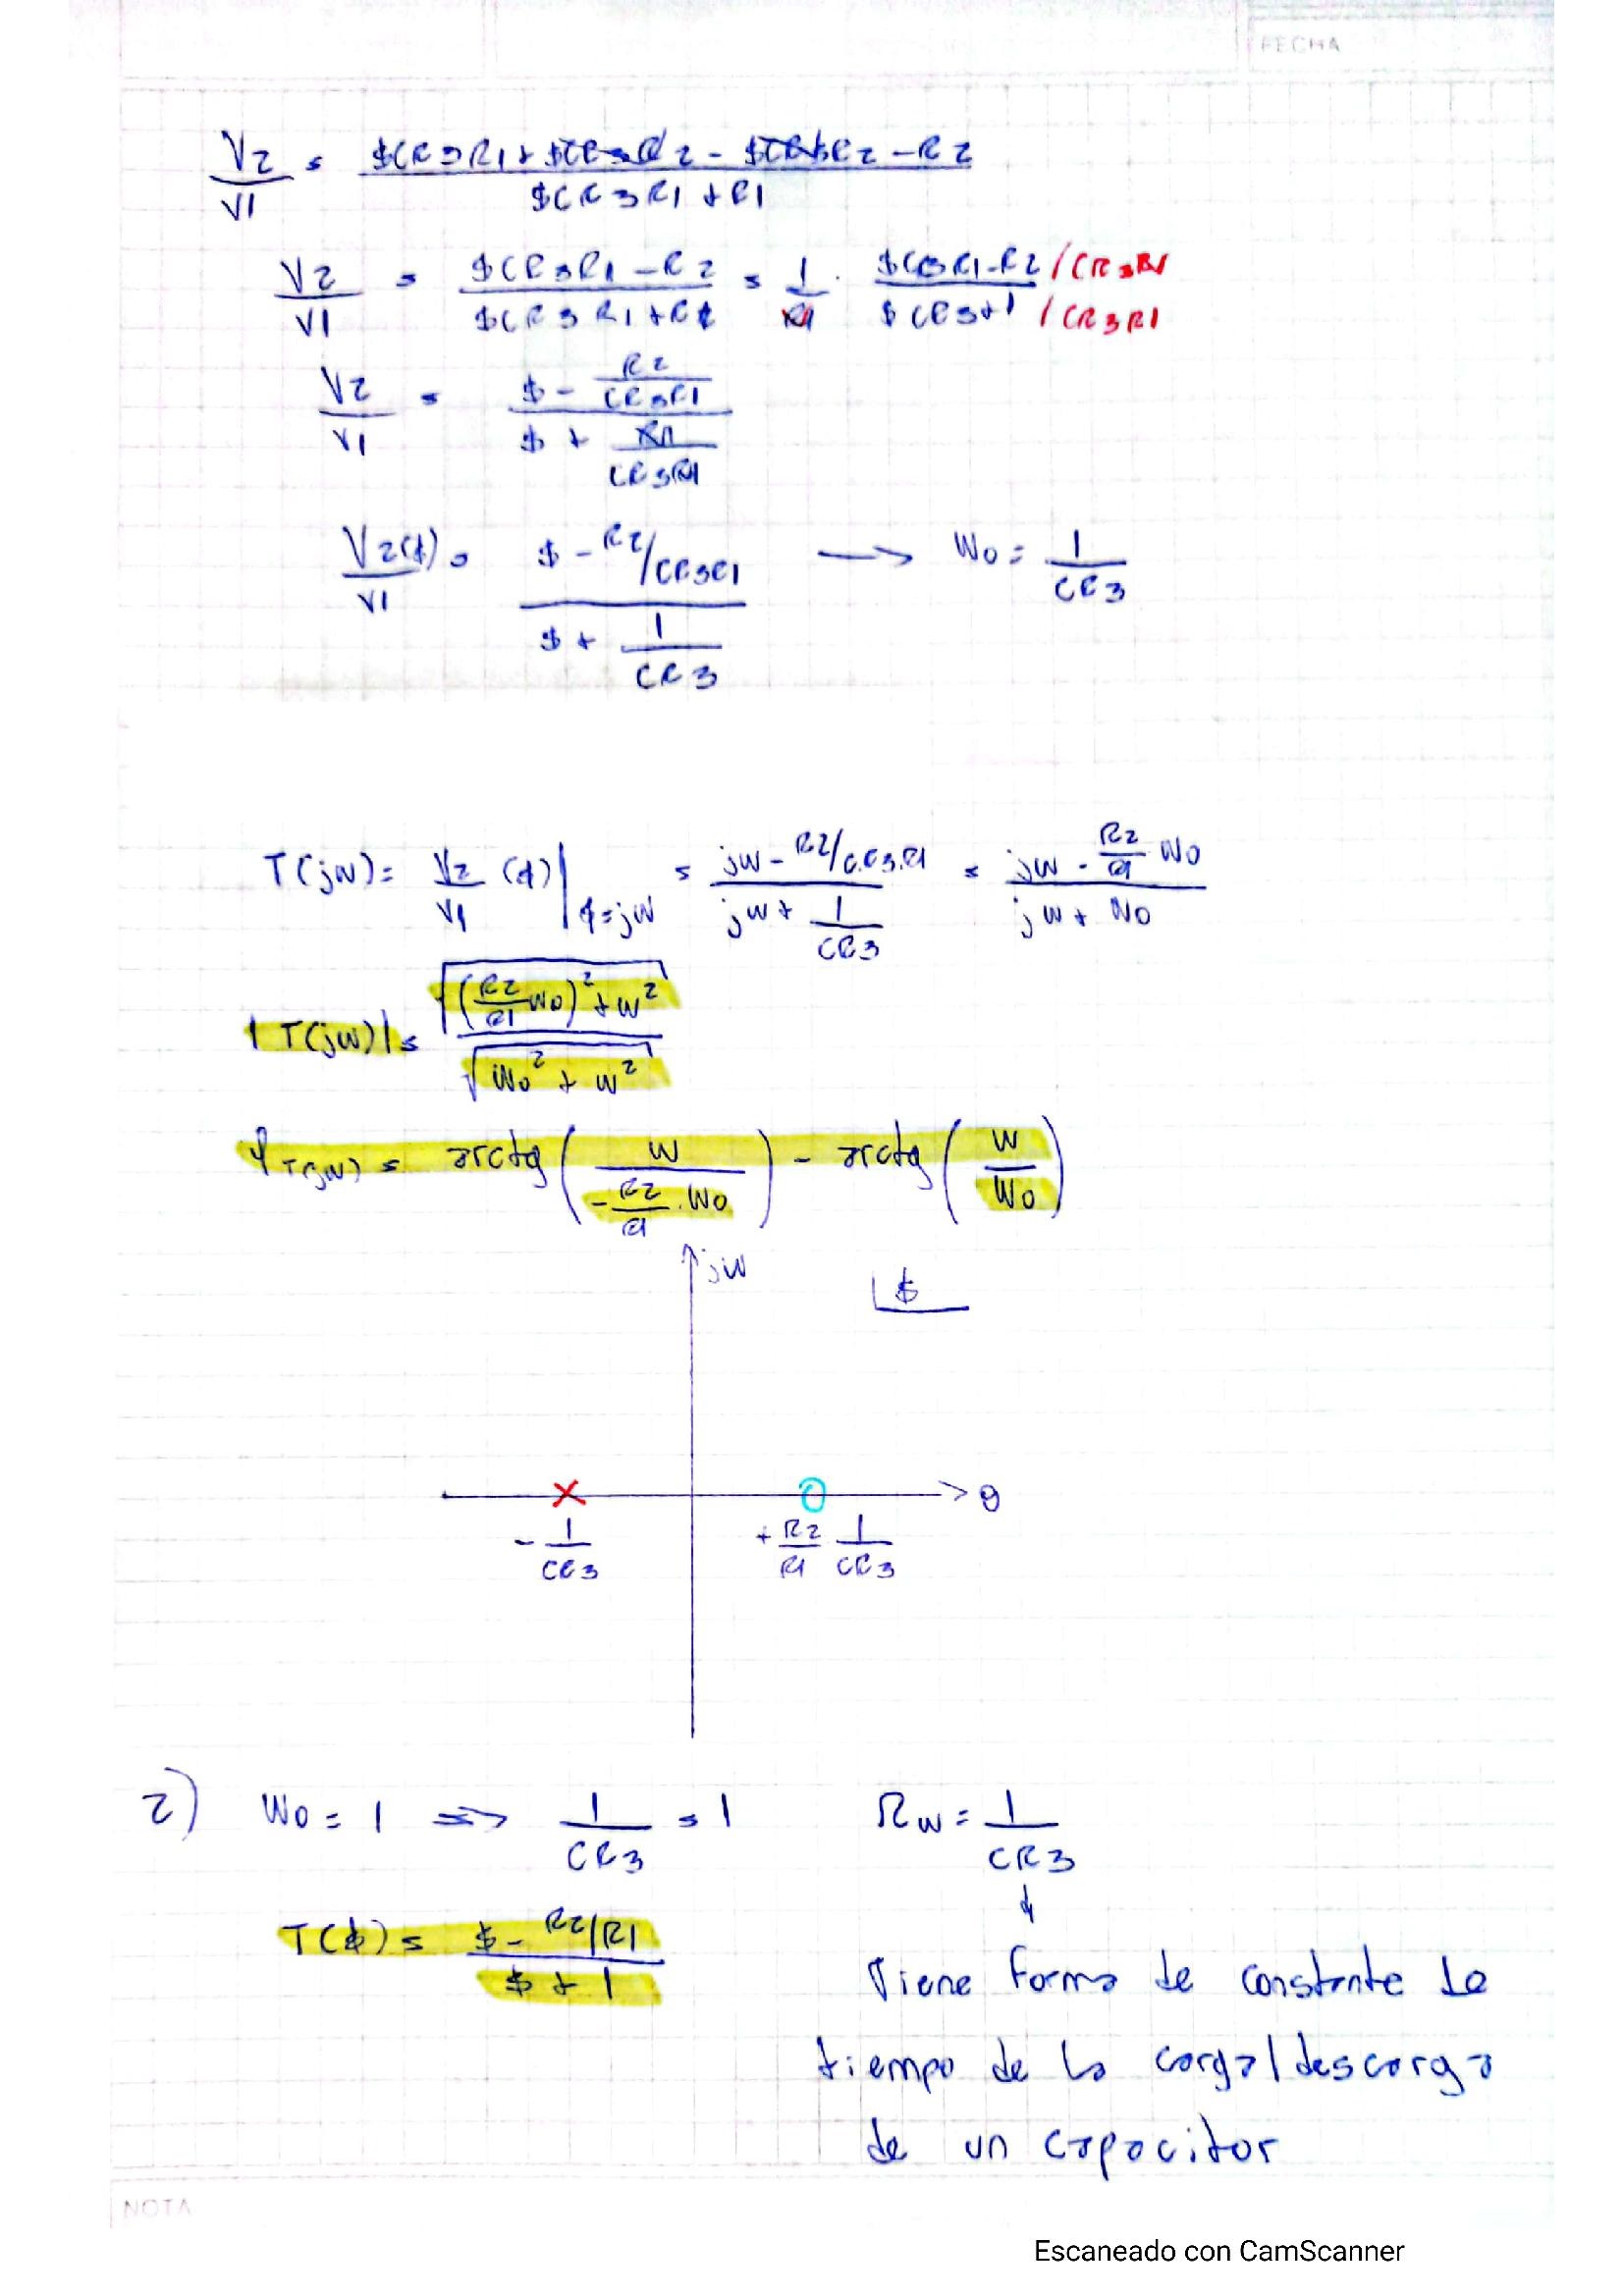 FECHA
V2/V1 = ($CR3R1 + $CR3R2 - $CR3R2 - R2) / ($CR3R1 + R1)
V2/V1 = ($CR3R1 - R2) / ($CR3R1 + R1) = 1/R1 · ($CR3R1 - R2 /CR3R1) / ($CR3 + 1 /CR3R1)
V2/V1 = ($ - R2/CR3R1) / ($ + R1/CR3R1)
V2($)/V1 = ($ - R2/CR3R1) / ($ + 1/CR3) → W0 = 1/CR3
T(jw) = V2/V1 ($)|$=jw = (jw - R2/C.R3.R1) / (jw + 1/CR3) = (jw - R2/R1 W0) / (jw + W0)
|T(jw)| = √((R2/R1 W0)² + w²) / √(W0² + w²)
φT(jw) = arctg(w / (-R2/R1 . W0)) - arctg(w/W0)
jw
$
σ
- 1/CR3
+ R2/R1 1/CR3
2) W0 = 1 => 1/CR3 = 1
Ωw = 1/CR3
T($) = ($ - R2/R1) / ($ + 1)
Tiene forma de constante de
tiempo de la carga/descarga
de un capacitor
NOTA
Escaneado con CamScanner